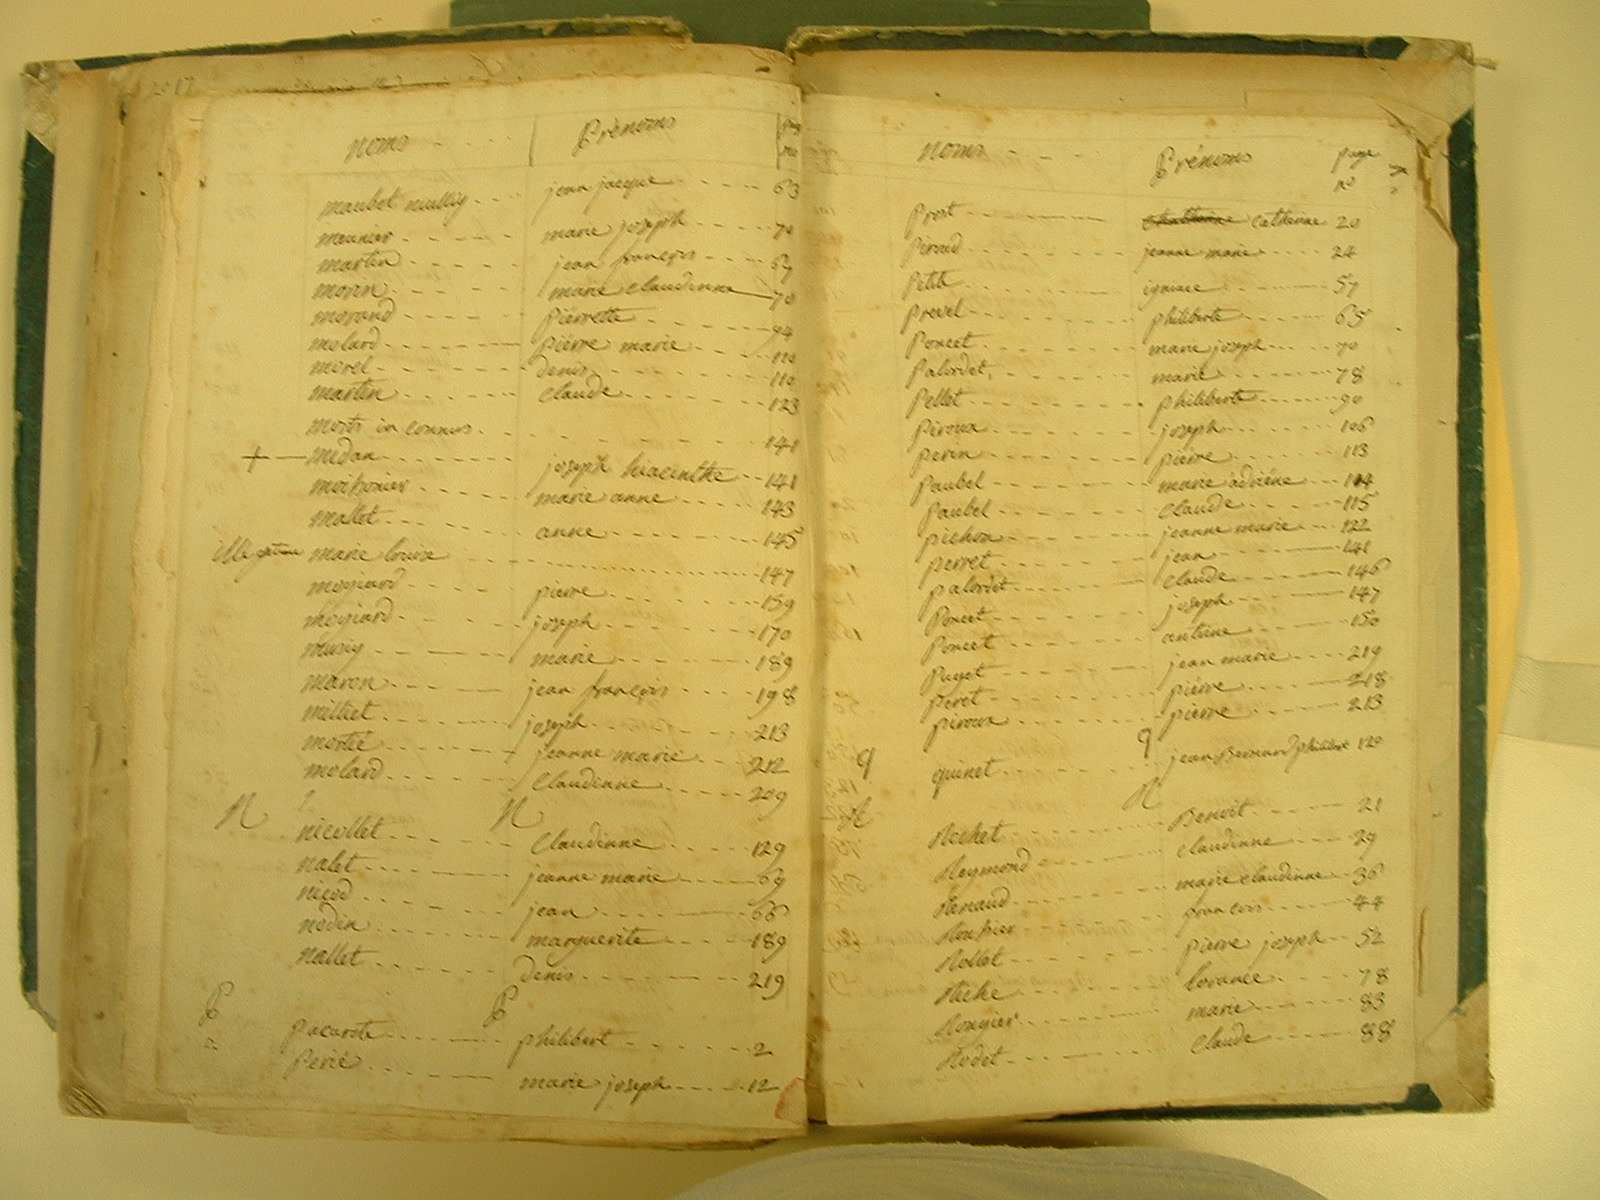 noms Prénoms page no
maubet jean jacque 63
meunier marie joseph 70
martin jean françois 69
morin marie claudinne 70
morand pierrette 94
molard pierre marie 110
morel denis 110
martin claude 123
morts in connus 141
+ medan joseph hiacinthe 141
moissonier marie anne 143
mallet anne 145
marie louise 147
moyniard pierre 159
moyniard joseph 170
musiy marie 189
maron jean françois 198
milliet joseph 213
mortié jeanne marie 212
molard claudinne 209
N N
nicollet claudinne 129
nalet jeanne marie 69
nicod jean 66
nodin marguerite 189
nallet denis 219
P P
pacarote philibert 2
Perié marie joseph 12
noms Prénoms page no
Prost catherine 20
Peroud jeanne marie 24
Petit ignace 57
Prevel philiberte 65
Poncet marie joseph 70
Palordet marie 78
Pellet philiberte 90
Peroux joseph 106
perin pierre 113
Paubel marie adriéne 114
Paubel claude 115
pichon jeanne marie 122
perret jean 141
palordet claude 146
Poncet joseph 147
Poncet antoine 150
Puget jean marie 219
Peret pierre 218
peroux pierre 213
q q
quinet jean Bernard philibert 129
R R
Richet Benoit 21
Reymond claudinne 29
Renaud marie claudinne 36
Rouhier francois 44
Rollet pierre joseph 52
Riche lorance 78
Rougier marie 83
Rodet claude 88